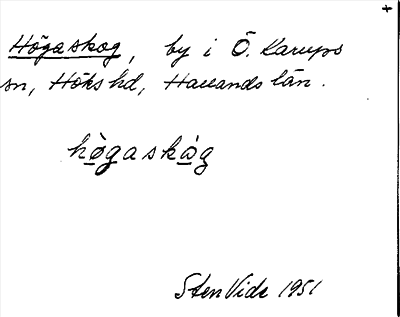 +
Högaskog, by i Ö. Karups
sn, Höks hd, Hallands län.
hògaskàg
Sten Vide 1951